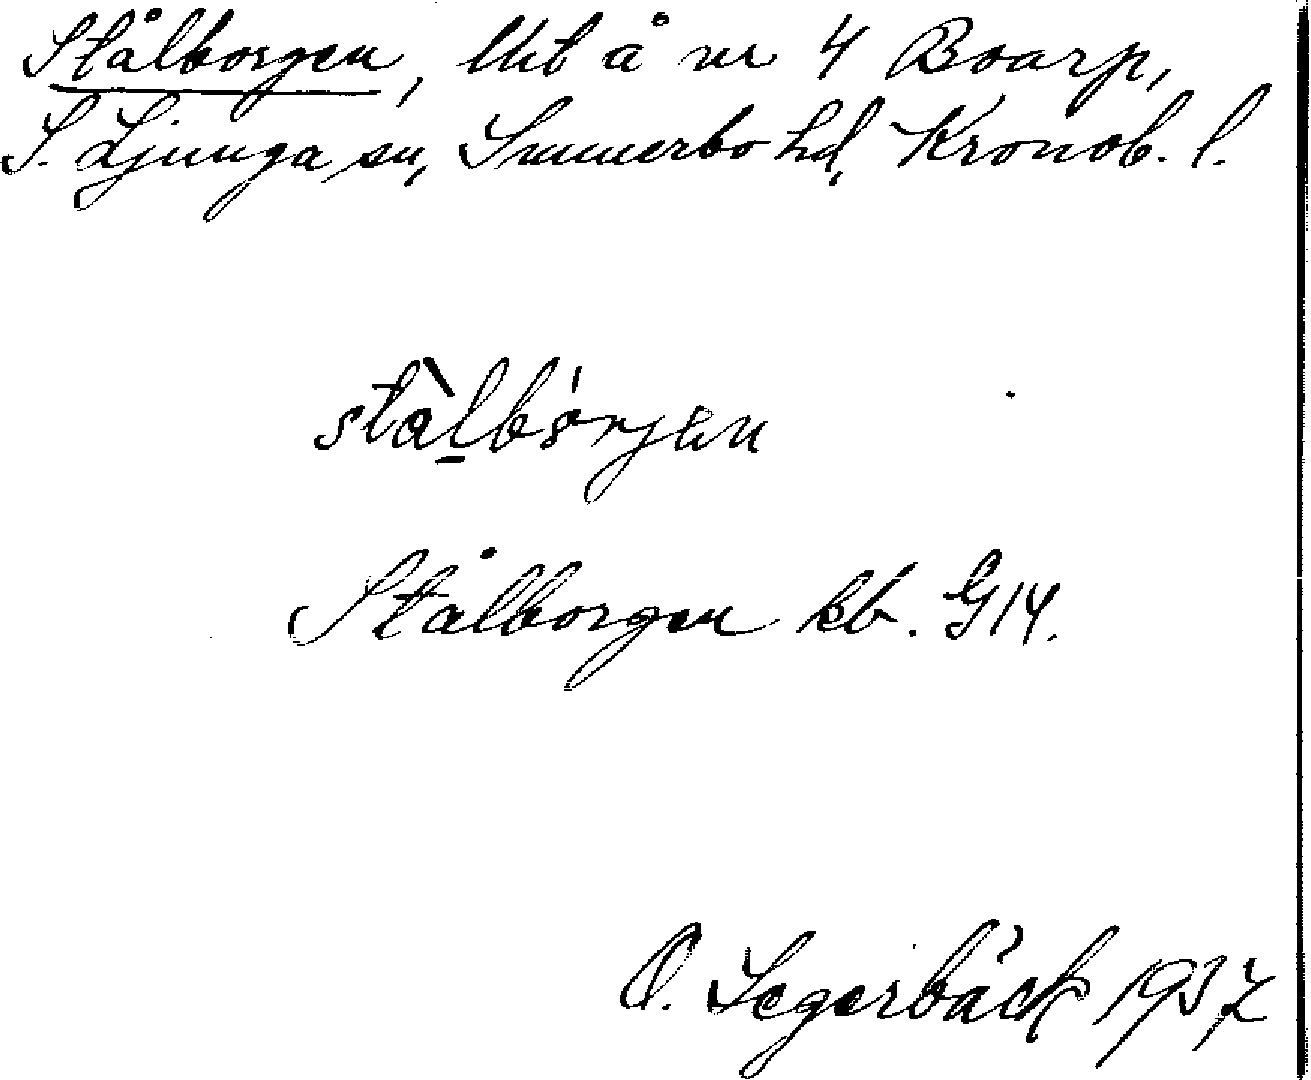 Stålborgen, Utb å nr 4 Boarp,
S. Ljunga sn, Sunnerbo hd, Kronob. l.
stålbórjen
Stålborgen kb. G14.
O. Segerbäck 1937